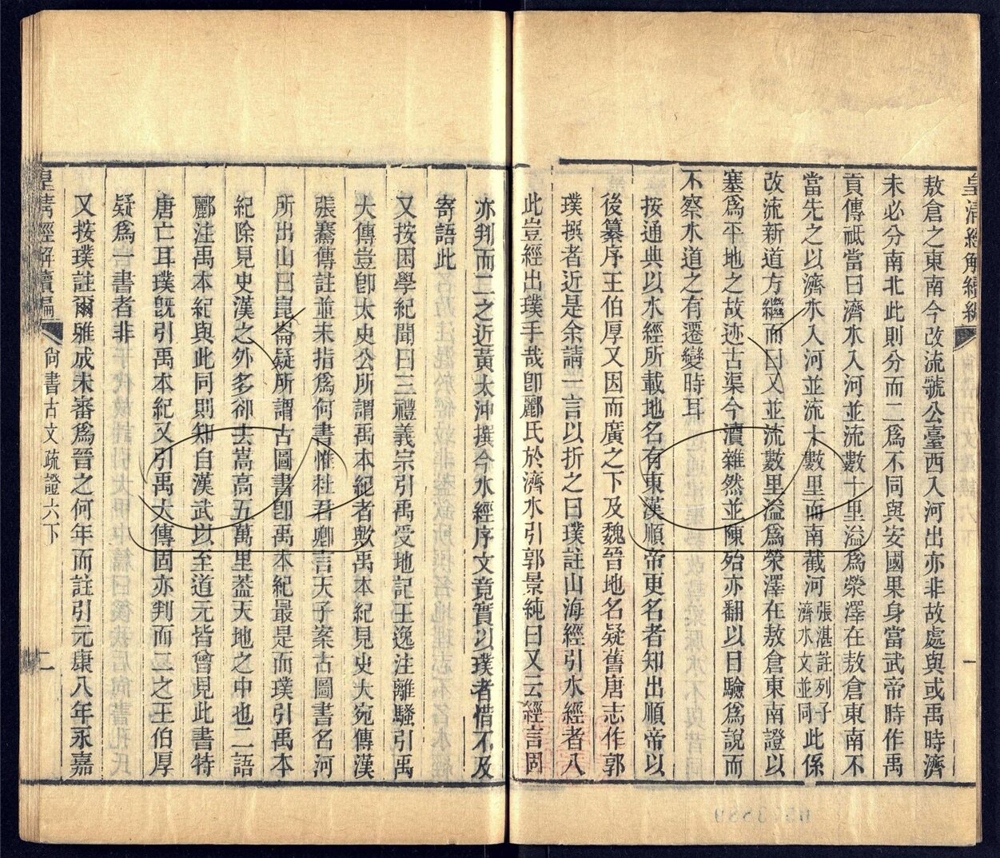 皇清經解續編
敖倉之東南今改流虢公臺西入河出亦非故處與或禹時濟
未必分南北此則分而二爲不同與安國果身當武帝時作禹
貢傳祗當曰濟水入河並流數十里溢爲滎澤在敖倉東南不
當先之以濟水入河並流十數里而南截河張湛註列子濟水文並同此係
改流新道方繼而曰又並流數里溢爲滎澤在敖倉東南證以
塞爲平地之故迹古渠今瀆雜然並陳殆亦翻以目驗爲說而
不察水道之有遷變時耳
按通典以水經所載地名有東漢順帝更名者知出順帝以
後纂序王伯厚又因而廣之下及魏晉地名疑舊唐志作郭
璞撰者近是余請一言以折之曰璞註山海經引水經者八
此豈經出璞手哉卽酈氏於濟水引郭景純曰又云經言固
亦判而二之近黃太沖撰今水經序文竟實以璞者惜不及
寄語此
又按困學紀聞曰三禮義宗引禹受地記王逸注離騷引禹
大傳豈卽太史公所謂禹本紀者歟禹本紀見史大宛傳漢
張騫傳註並未指爲何書惟杜君卿言天子案古圖書名河
所出山曰崑崙疑所謂古圖書卽禹本紀最是而璞引禹本
紀除見史漢之外多卻去嵩高五萬里葢天地之中也二語
酈注禹本紀與此同則知自漢武以至道元皆曾見此書特
唐亡耳璞旣引禹本紀又引禹大傳固亦判而二之王伯厚
疑爲一書者非
又按璞註爾雅成未審爲晉之何年而註引元康八年永嘉
皇清經解續編
尚書古文疏證六下